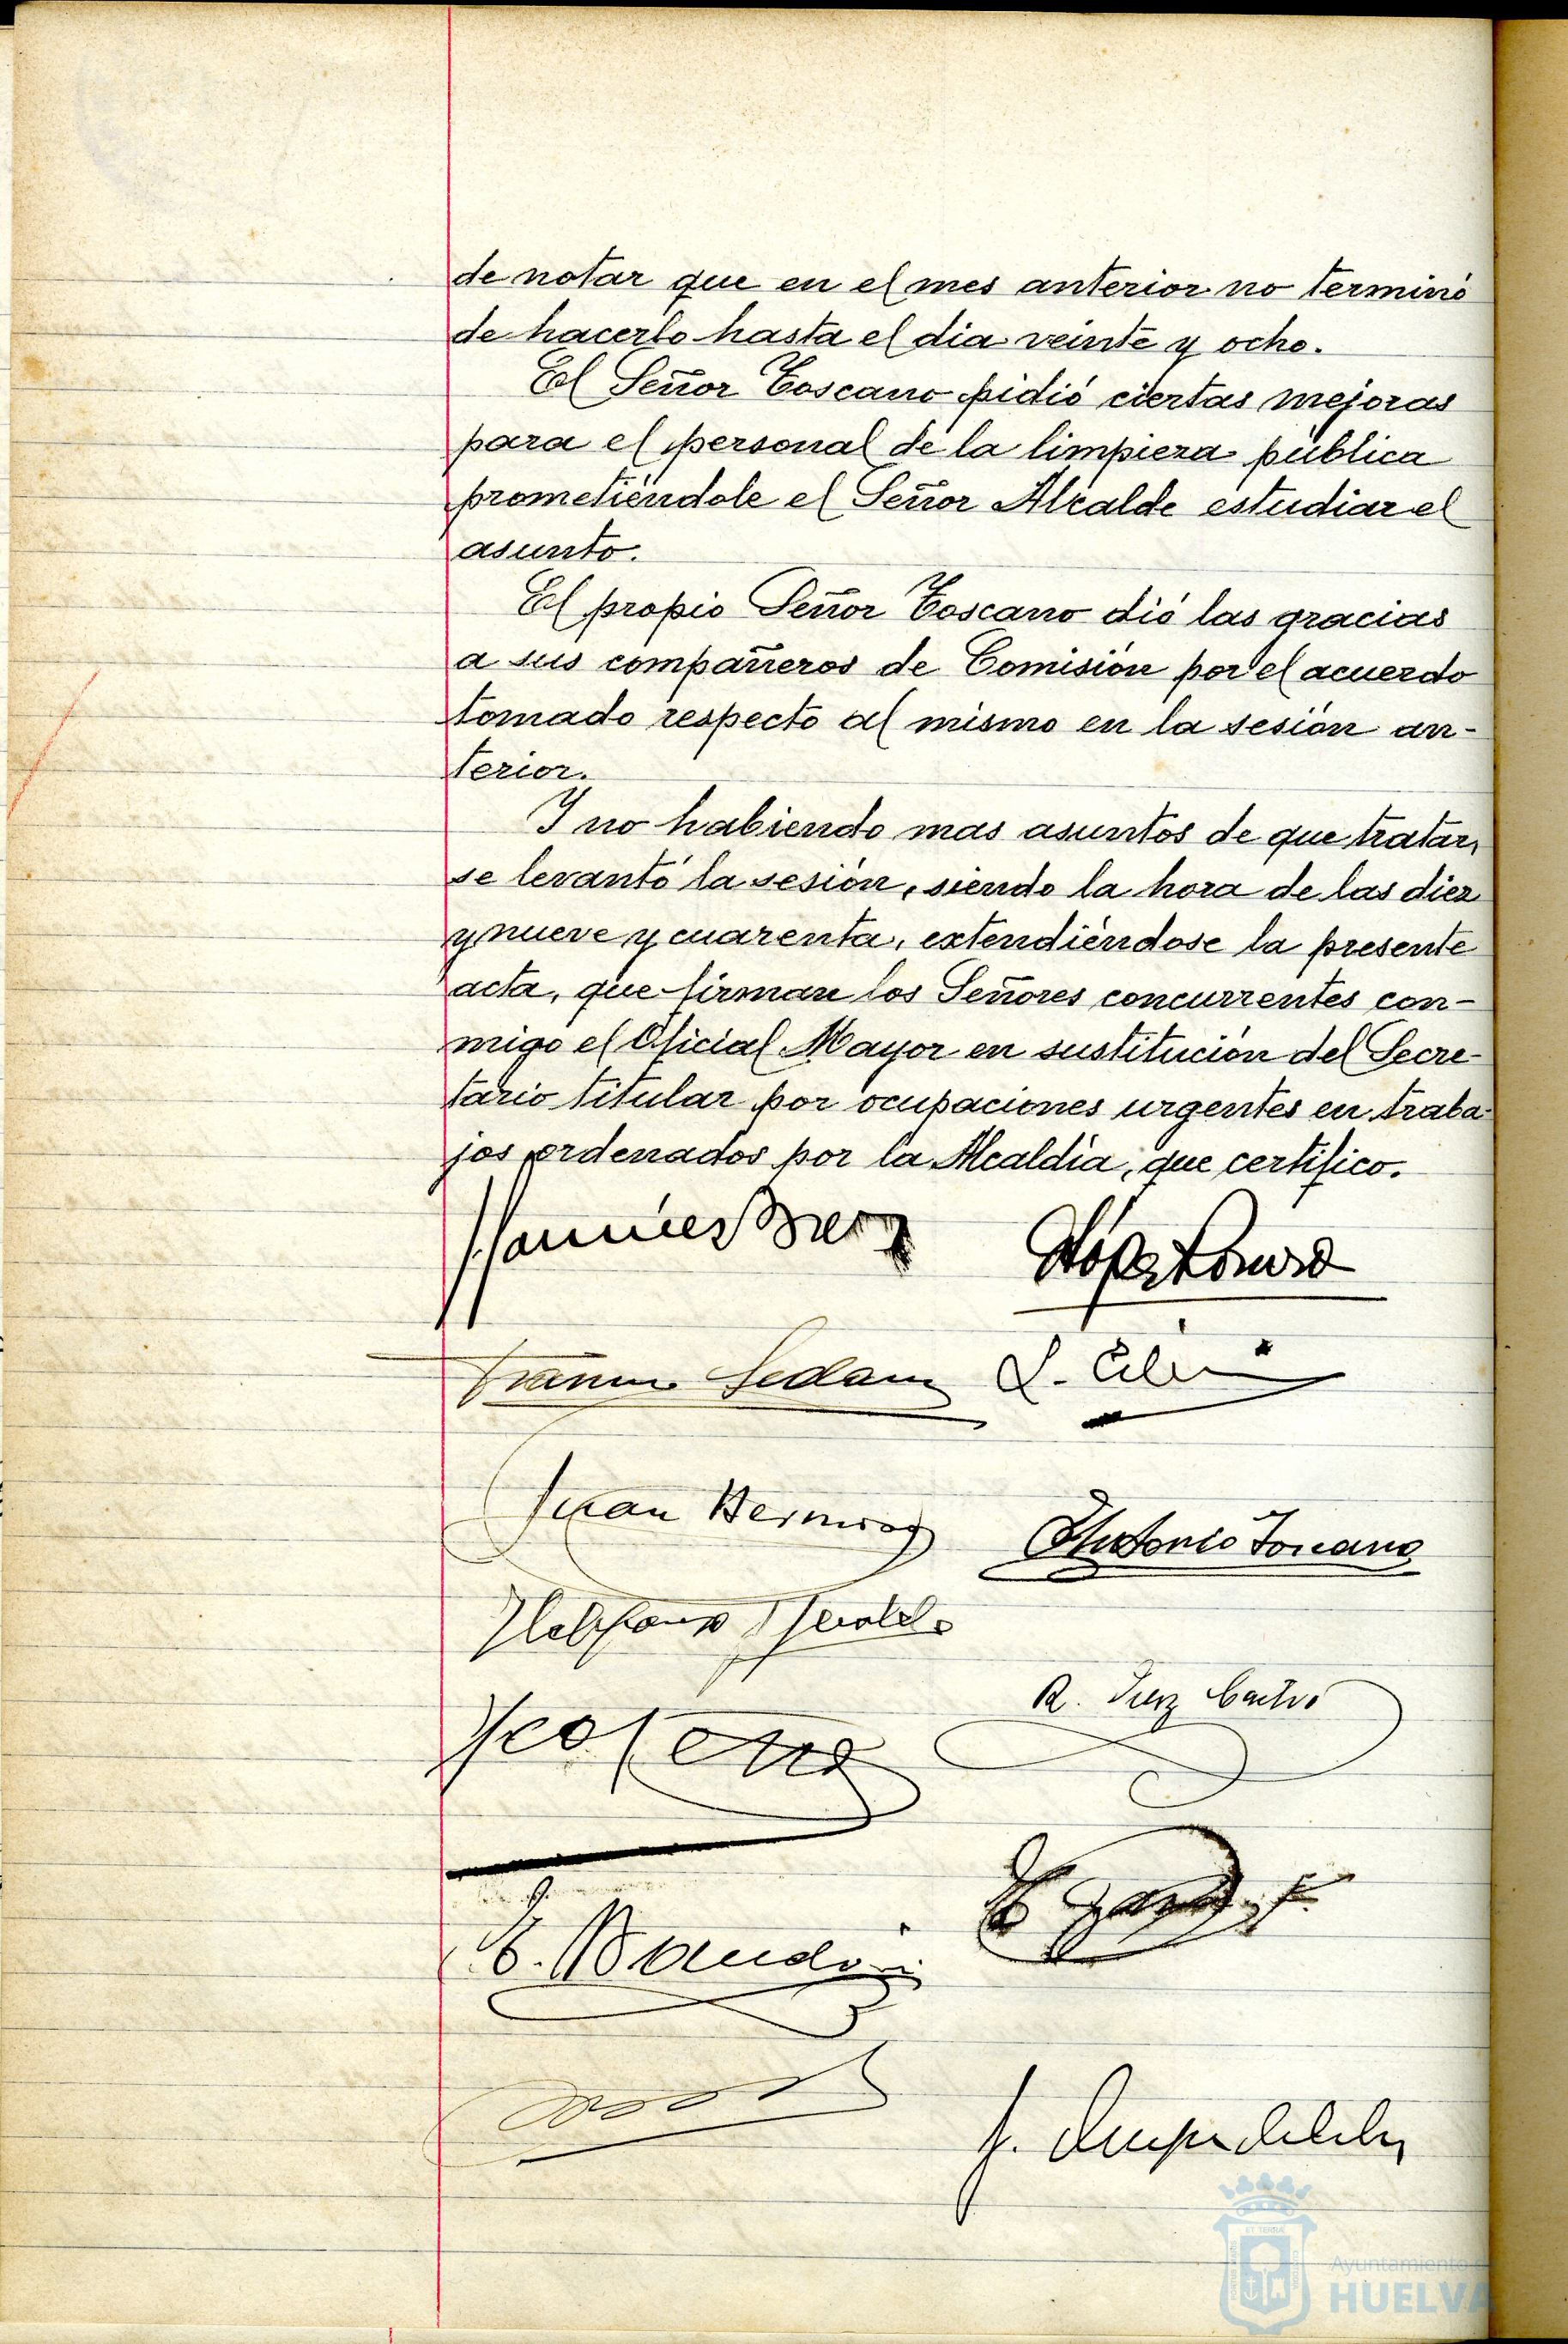 de notar que en el mes anterior no terminó
de hacerlo hasta el dia veinte y ocho.
El Señor Toscano pidió ciertas mejoras
para el personal de la limpieza pública
prometiéndole el Señor Alcalde estudiar el
asunto.
El propio Señor Toscano dió las gracias
a sus compañeros de Comisión por el acuerdo
tomado respecto al mismo en la sesión an-
terior.
Y no habiendo mas asuntos de que tratar,
se levantó la sesión, siendo la hora de las diez
y nueve y cuarenta, extendiéndose la presente
acta, que firman los Señores concurrentes con-
migo el Oficial Mayor en sustitución del Secre-
tario titular por ocupaciones urgentes en traba-
jos ordenados por la Alcaldia, que certifico.
Juan
Antonio Toscano
R. Castro
Ayuntamiento
HUELVA